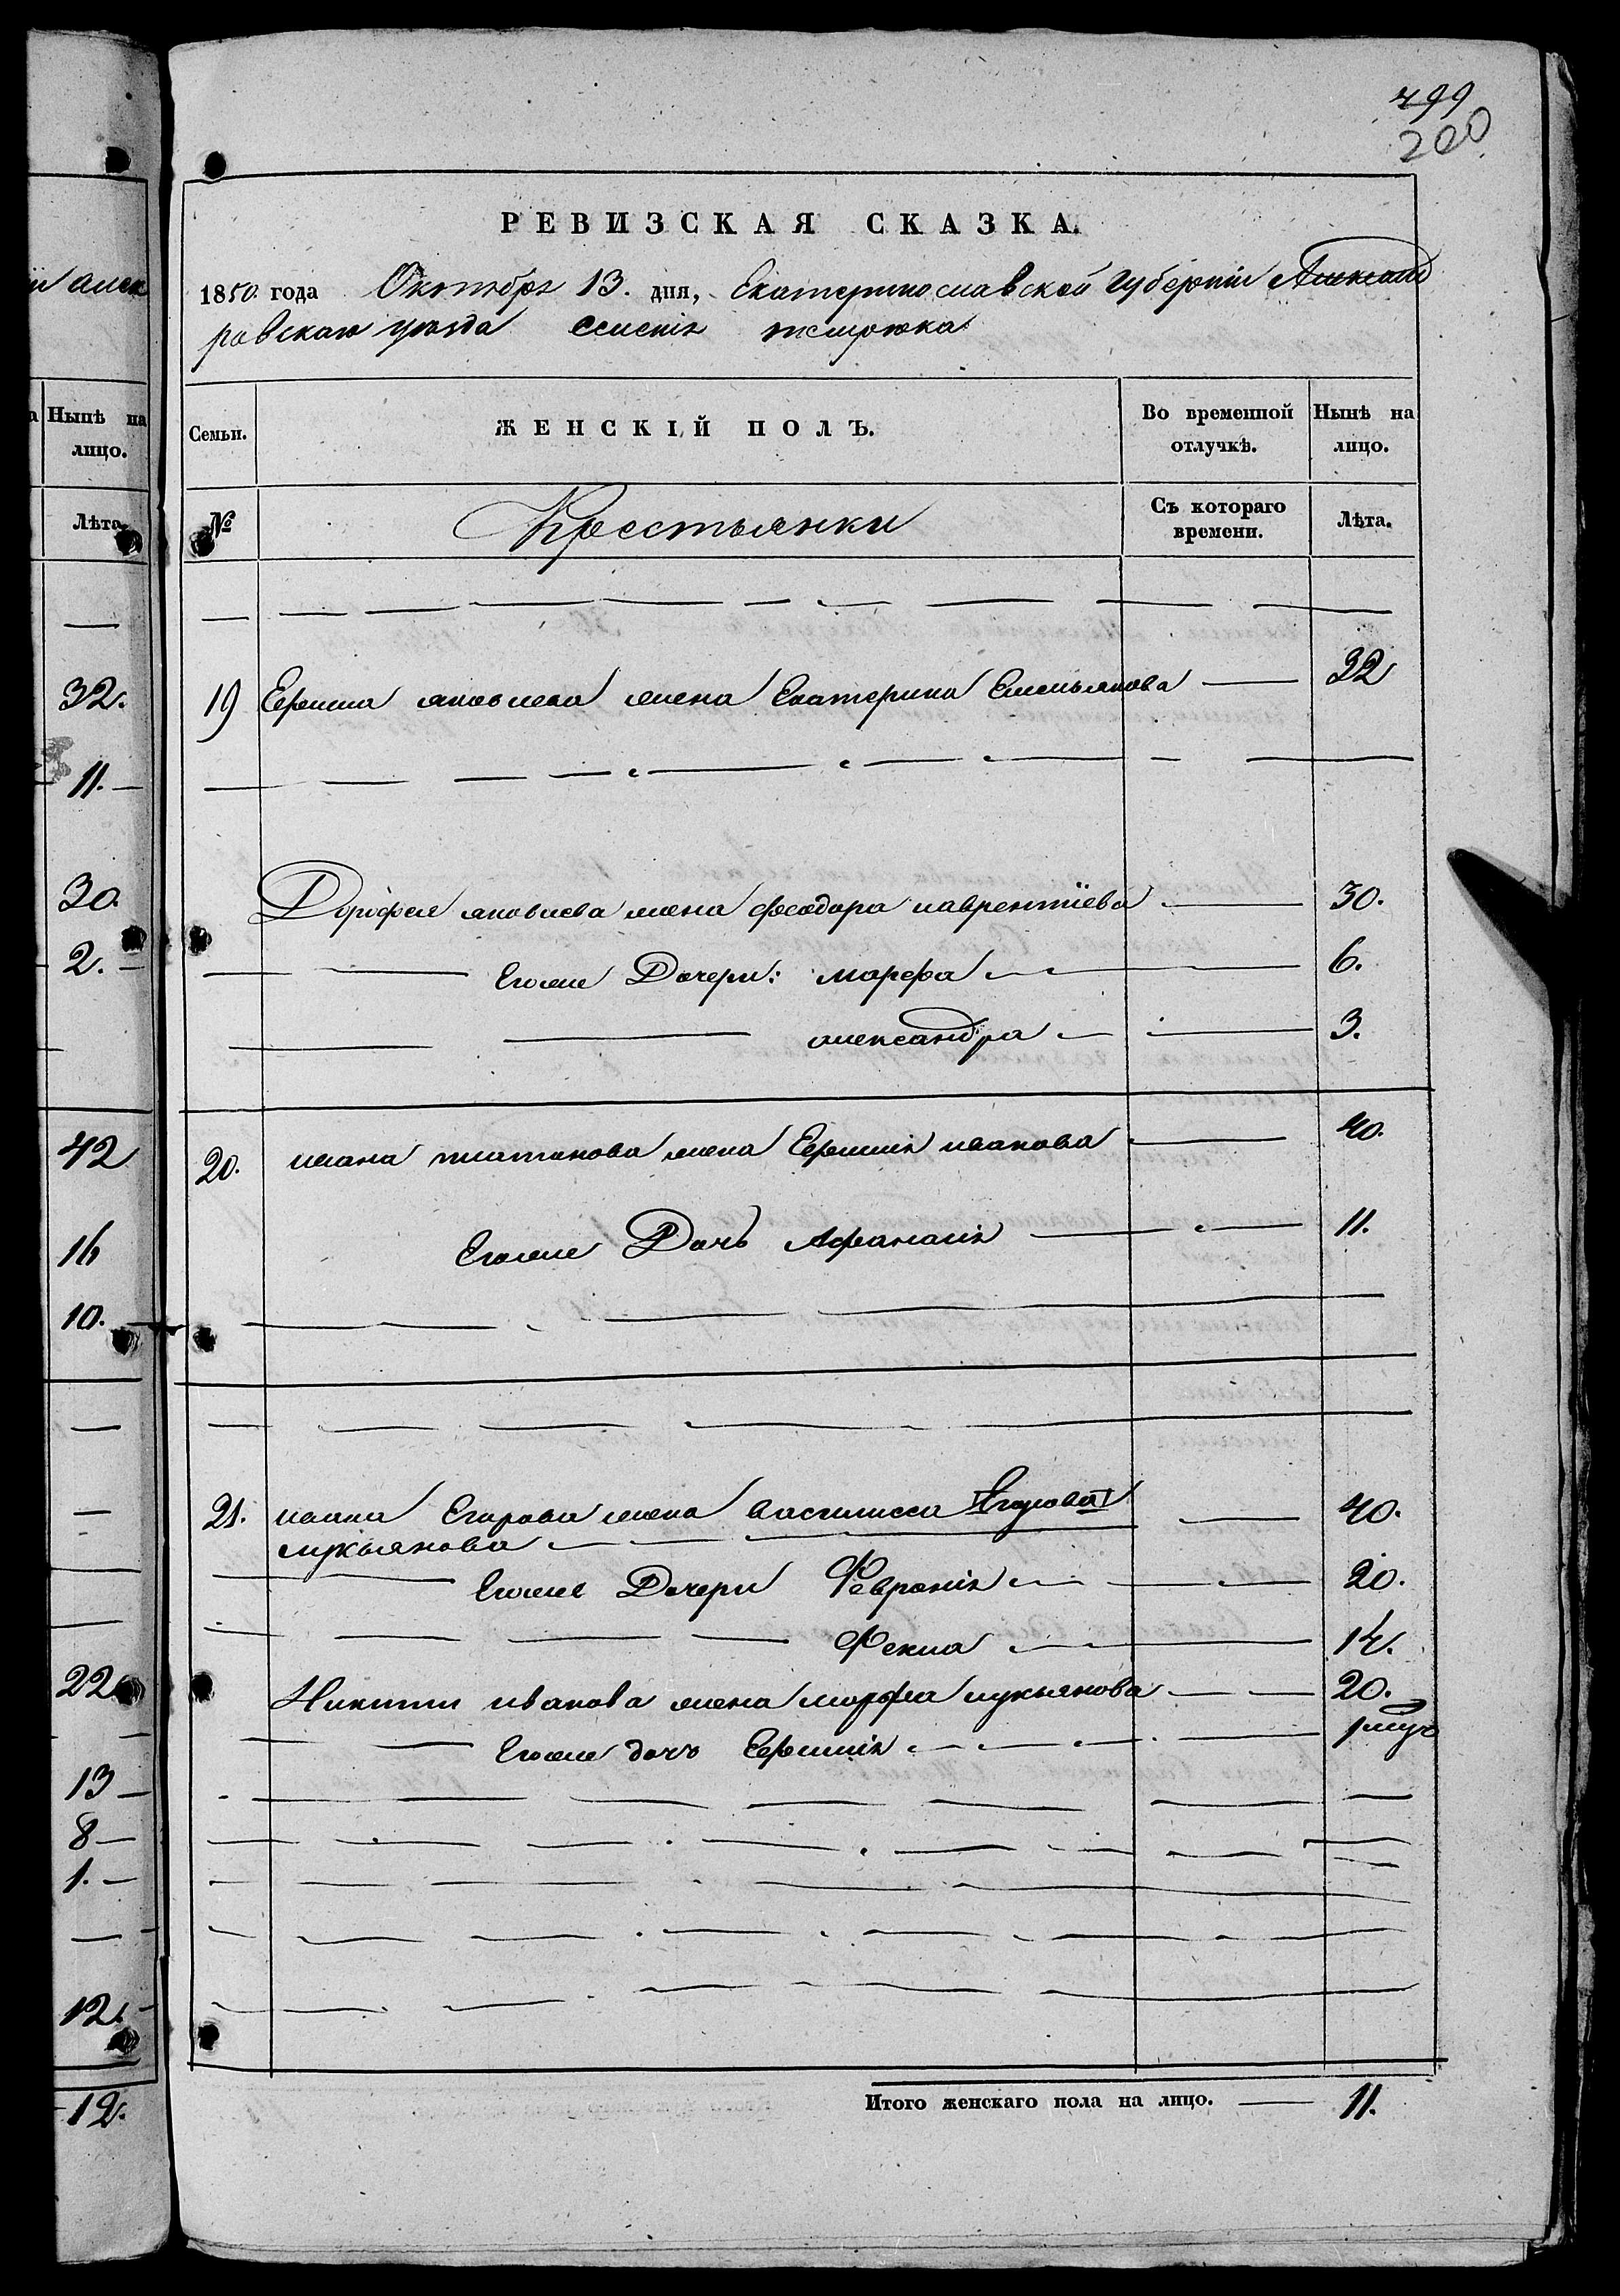 499
200
РЕВИЗСКАЯ СКАЗКА.
1850. года Октября 13. дня, Екатеринославской губерніи Александ
ровскаго уѣзда селенія
Семьи.
ЖЕНСКІЙ ПОЛЪ.
Во временной отлучкѣ.
Нынѣ на лицо.
№
Крестьянки
Съ котораго времени.
Лѣта.
19 Ефима яковлева жена Екатерина Емельянова 32
Дорофея яковлева жена феодора лаврентіева 30.
Егоже Дочери: марфа 6.
александра 3.
20. ивана платонова жена Ефимія иванова 40.
Егоже Дочь Афанасія 11.
21. ивана Егорова жена василисса Егорова 40.
лукьянова
Егоже Дочери Февронія 20.
Фекла 14.
Никиты иванова жена марфа лукьянова 20.
Егоже дочь Ефимія
Итого женскаго пола на лицо. 11.
Нынѣ на
лицо.
Лѣта
32.
11.
30.
2.
42
16
10.
22.
13
8
1.
12.
12.